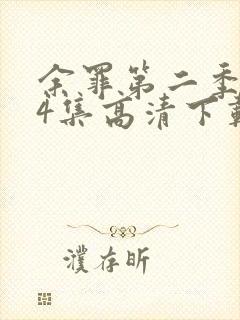 余罪第二季
4集高清下载
濮存昕